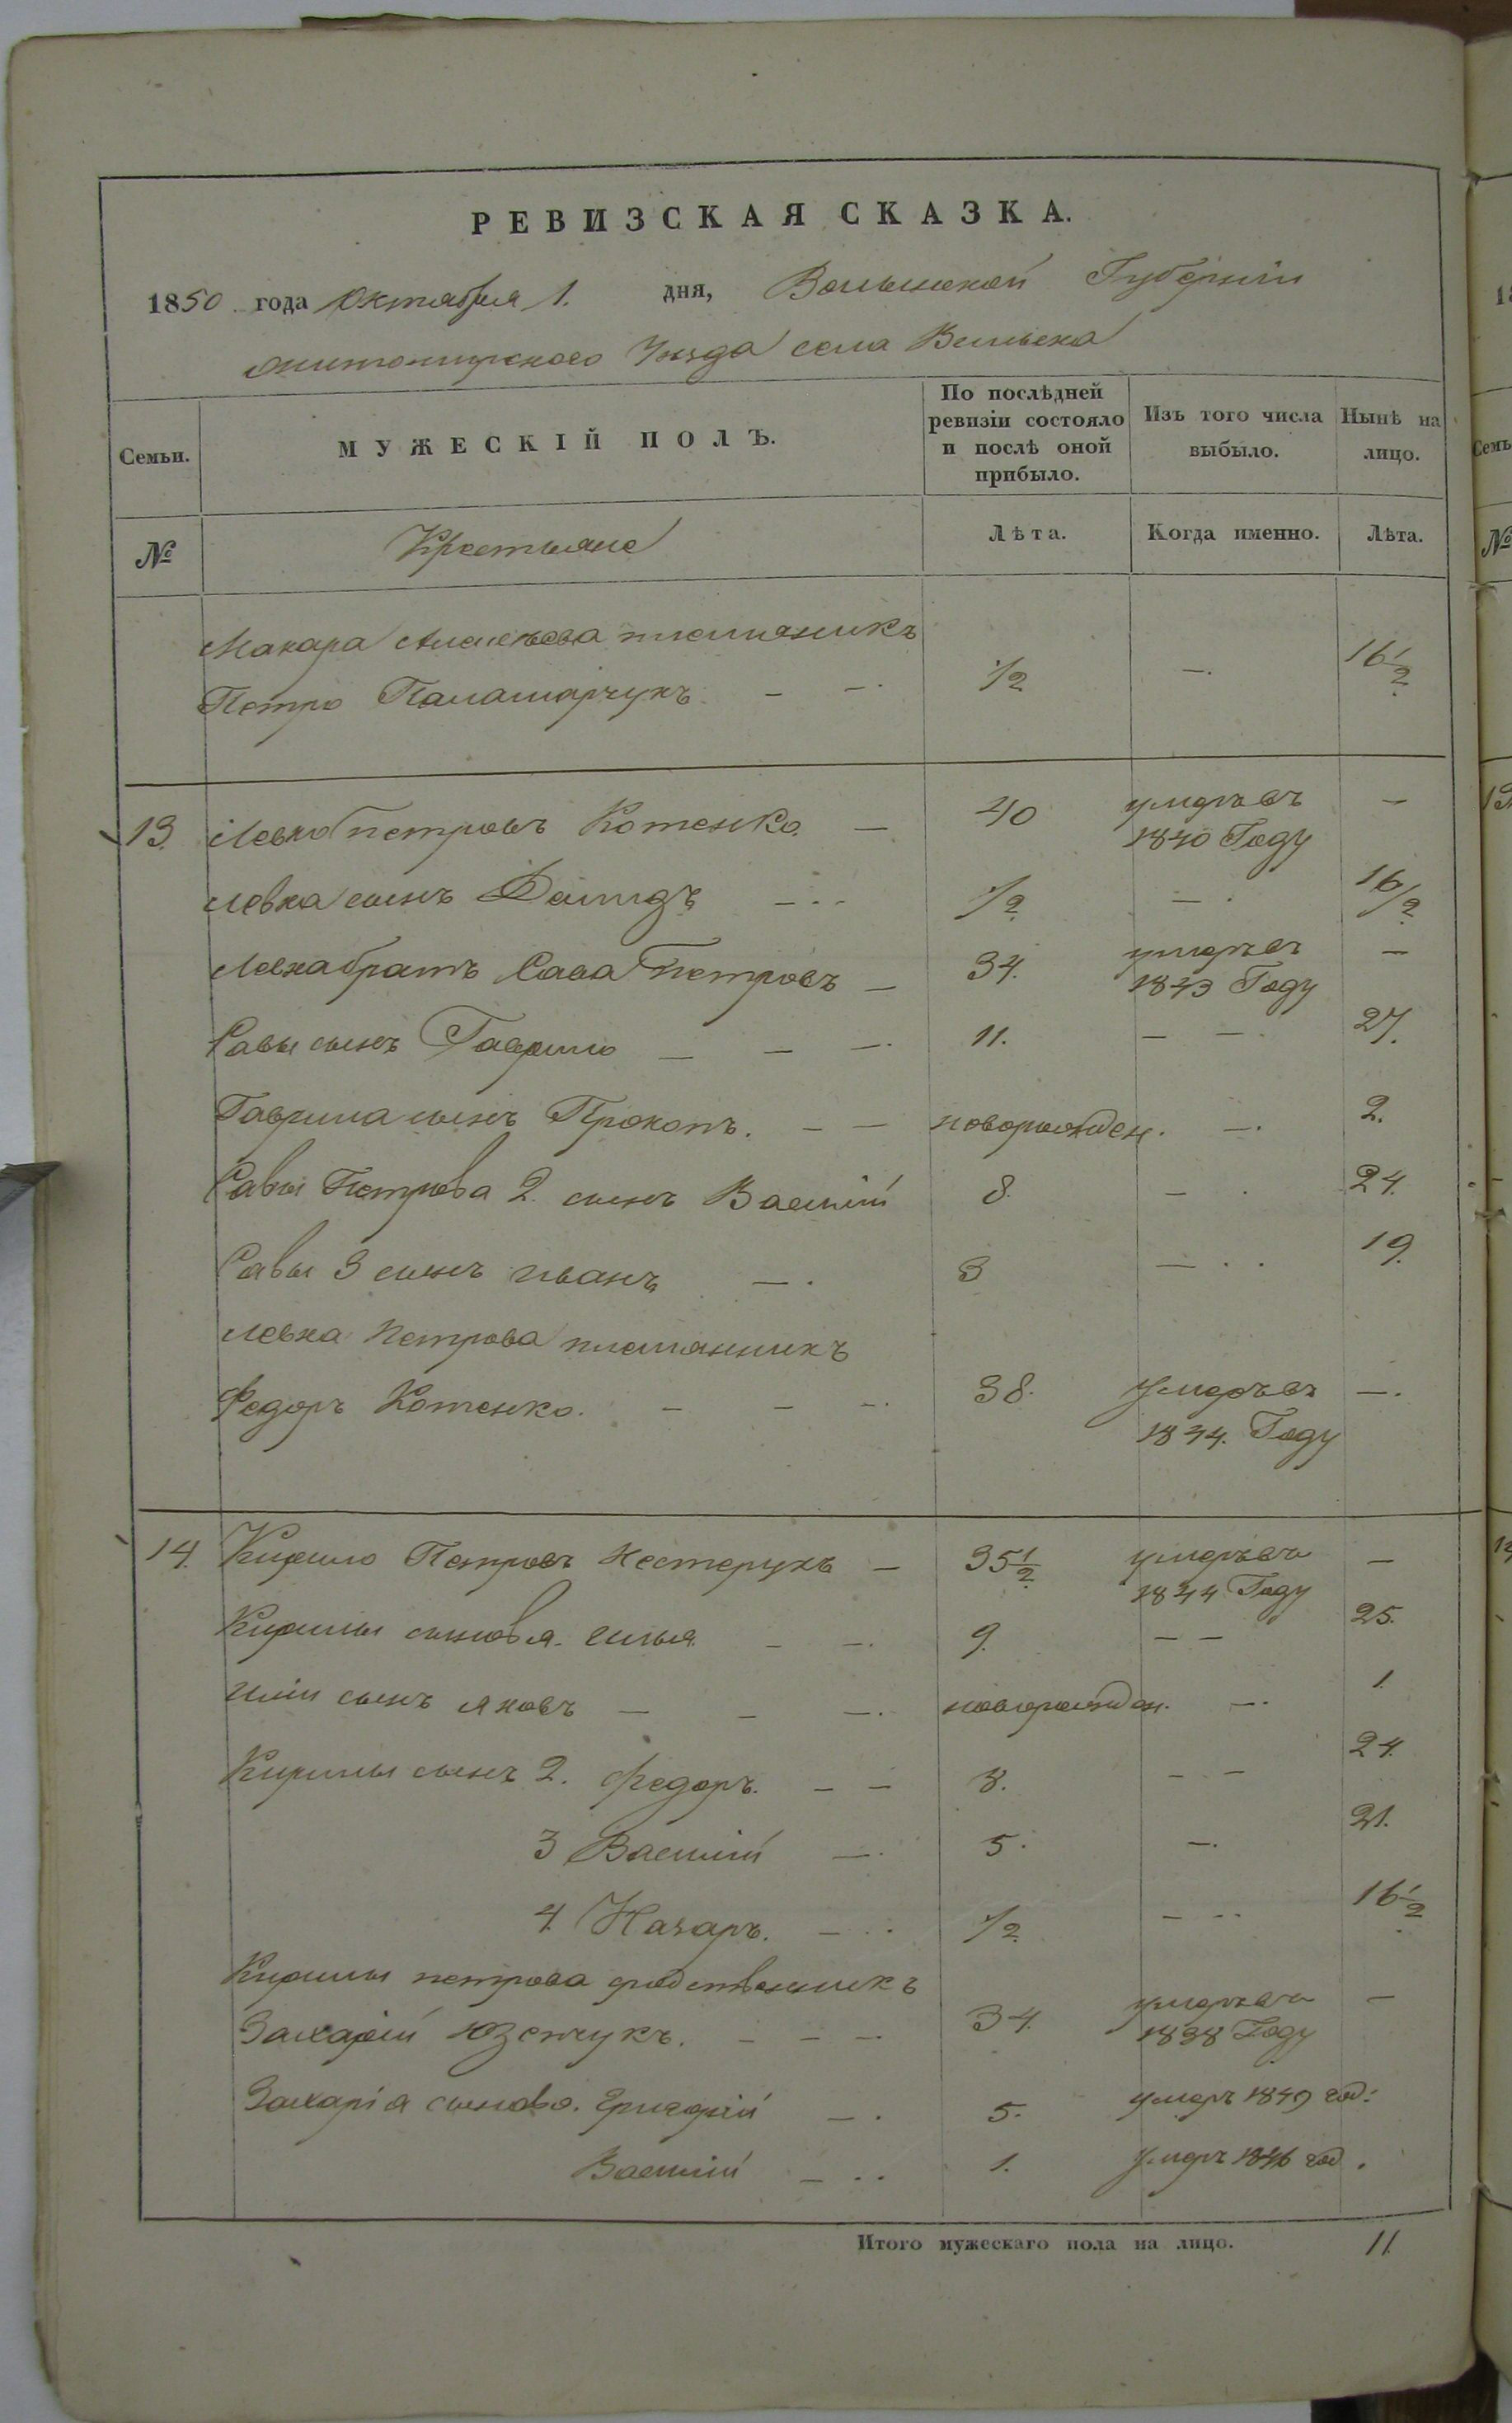 РЕВИЗСКАЯ СКАЗКА.
1850 года Октября 1. дня, Волынской Губерніи
Житомирского Уѣзда села Вильска
Семьи. МУЖЕСКІЙ ПОЛЪ. По послѣдней ревизіи состояло и послѣ оной прибыло. Изъ того числа выбыло. Нынѣ на лицо.
№ Крестьяне Лѣта. Когда именно. Лѣта.
Макара Алексѣева племяникъ
Петро Паламарчукъ — —. 1/2 —. 16 1/2
13. Левко Петровъ Котенко — 40 умеръ въ 1840 Году —
Левка сынъ Давидъ — 1/2 — 16 1/2
Левка братъ Сава Петровъ — 34. умеръ въ 1843 Году —
Савы сынъ Гаврило — — —. 11. — — 27.
Гаврила сынъ Прокопъ. — — новорожден. —. 2.
Савы Петрова 2. сынъ Василій 8. — 24.
Савы 3 сынъ иванъ —. 3 — 19.
Левка Петрова племянникъ
Федоръ Котенко. — — —. 38. Умеръ въ —.
1844. Году
14. Кирило Петровъ Нестерукъ — 35 1/2 умеръ въ 1844 Году —
Кирилы сыновья. Илья — —. 9. — — 25.
Иліи сынъ Яковъ — — —. новорожден. —. 1
Кирилы сынъ 2. Федоръ. — — 8. — — 24.
3 Василій —. 5. —. 21.
4. Назаръ. — 1/2 — 16 1/2
Кирилы петрова родственникъ
Захарій Юзенчукъ. — — — 34. умеръ въ 1838 Году —
Захарія сыновя. Григорій —. 5. умеръ 1849 год:
Василій — 1. Умеръ 1846 год.
Итого мужескаго пола на лицо. 11.